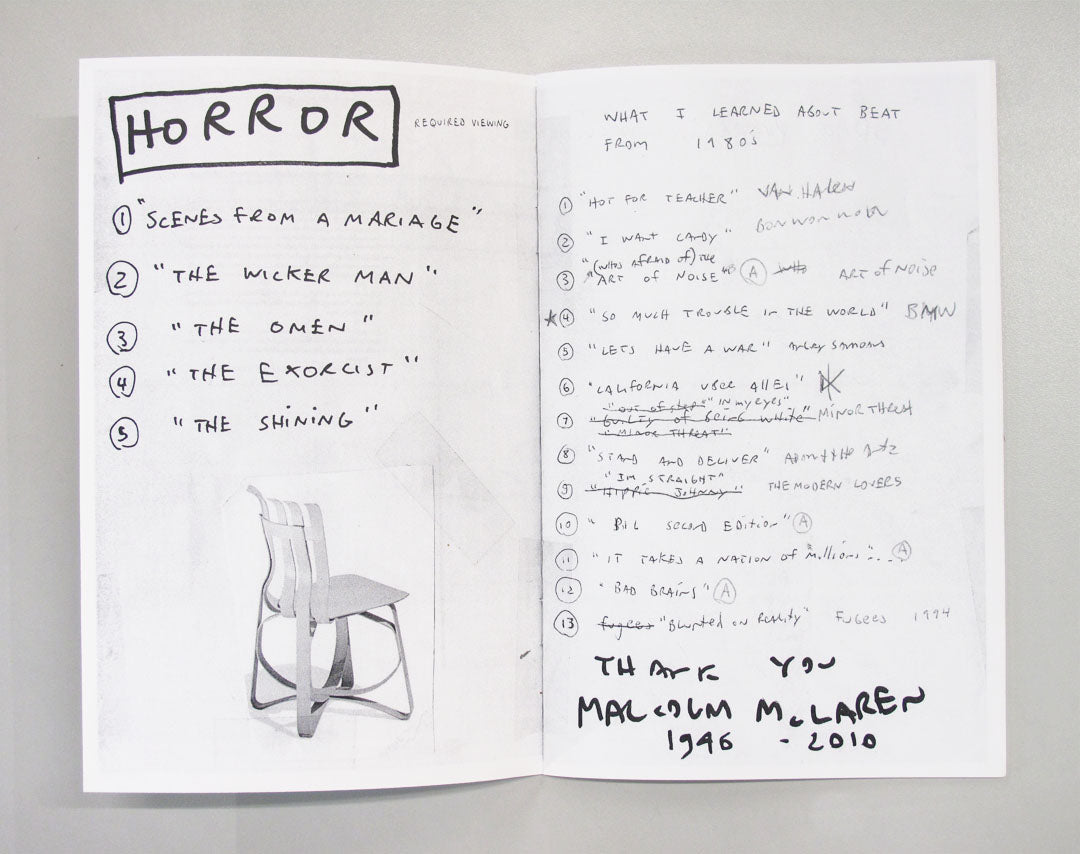 HORROR
REQUIRED VIEWING
① "SCENES FROM A MARIAGE"
② "THE WICKER MAN"
③ "THE OMEN"
④ "THE EXORCIST"
⑤ "THE SHINING"
WHAT I LEARNED ABOUT BEAT
FROM 1980's
① "HOT FOR TEACHER" VAN HALEN
② "I WANT CANDY"
"(WHOS AFRAID OF) THE
③ "ART OF NOISE" Ⓐ WHO ART OF NOISE
★④ "SO MUCH TROUBLE IN THE WORLD" BMW
⑤ "LETS HAVE A WAR"
⑥ "CALIFORNIA UBER ALLES" DK
"OUT OF STEP" "IN MY EYES"
⑦ "GUILTY OF BEING WHITE" MINOR THREAT
"MINOR THREAT"
⑧ "STAND AND DELIVER" ADAM & THE
"IM STRAIGHT"
⑨ "HIPPIE JOHNNY" THE MODERN LOVERS
⑩ "PIL SECOND EDITION" Ⓐ
⑪ "IT TAKES A NATION OF MILLIONS"... Ⓐ
⑫ "BAD BRAINS" Ⓐ
⑬ fugees "Blunted on REALITY" FUGEES 1994
THANK YOU
MALCOLM McLAREN
1946 - 2010